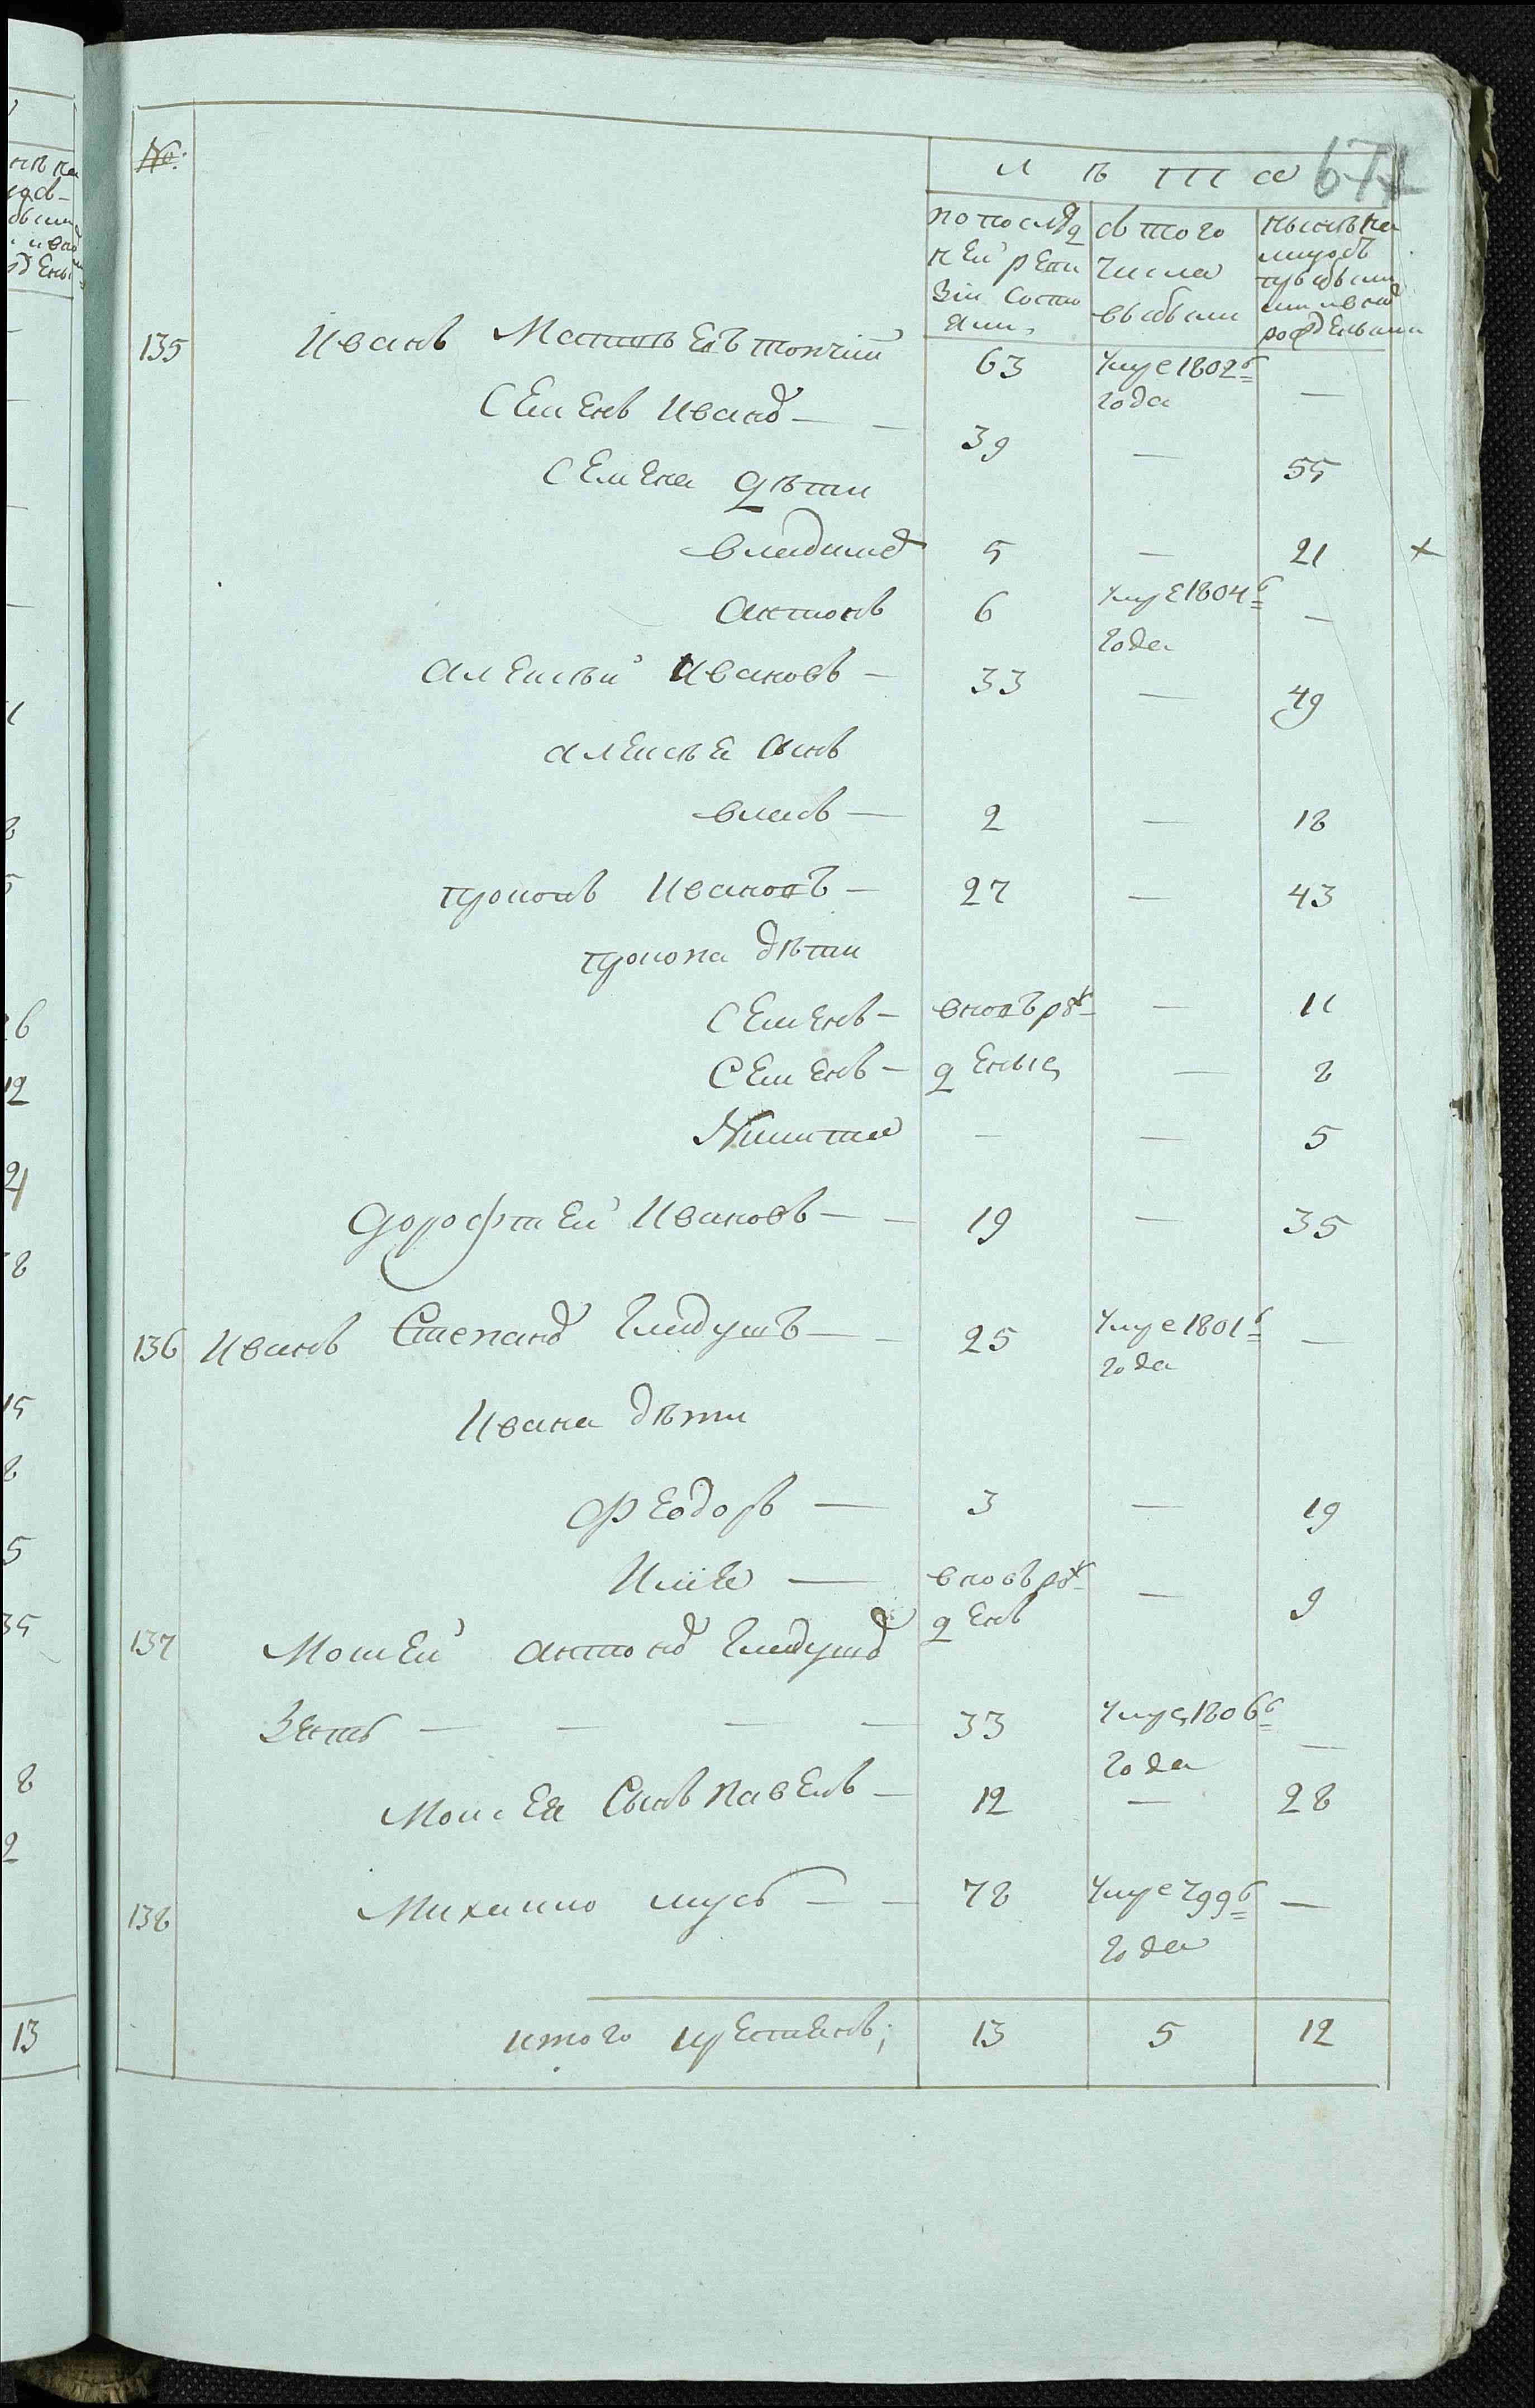 №:
лѣта
671
по послѣд
ней реви
зіи состо
яли,
съ того
числа
выбыли
нынѣ на
лицо съ
прибылы
ми и вно
рождеными
135 Иванъ Матвѣевъ Товчій 63 умре 1802г
года —
Семенъ Иванов — — 39 — 55
Семена дѣти
Владимер 5 — 21 ×
Антонъ 6 умре 1804г —
года
Алексѣй Ивановъ — 33 — 49
Алексѣя сынъ
Власъ — 2 — 18
Прокопъ Ивановъ — 27 — 43
Прокопа дѣти
Семенъ — вновь рож — 11
Семенъ — дены, — 8
Никита — — 5
Дорофтей Ивановъ — — 19 — 35
136 Иванъ Степанов Гладушъ — — 25 умре 1801г —
года
Ивана дѣти
Феодоръ — 3 — 19
Илія — вновь рож — 9
денъ
137 Мойсей Антонов Гладушов
Зять — — — — 33 умре, 1806г —
года
Мойсея Сынъ Павелъ — 12 — 28
138 Михайло Мусъ — — 78 умре 799г —
года
итого крестянъ; 13 5 12
13